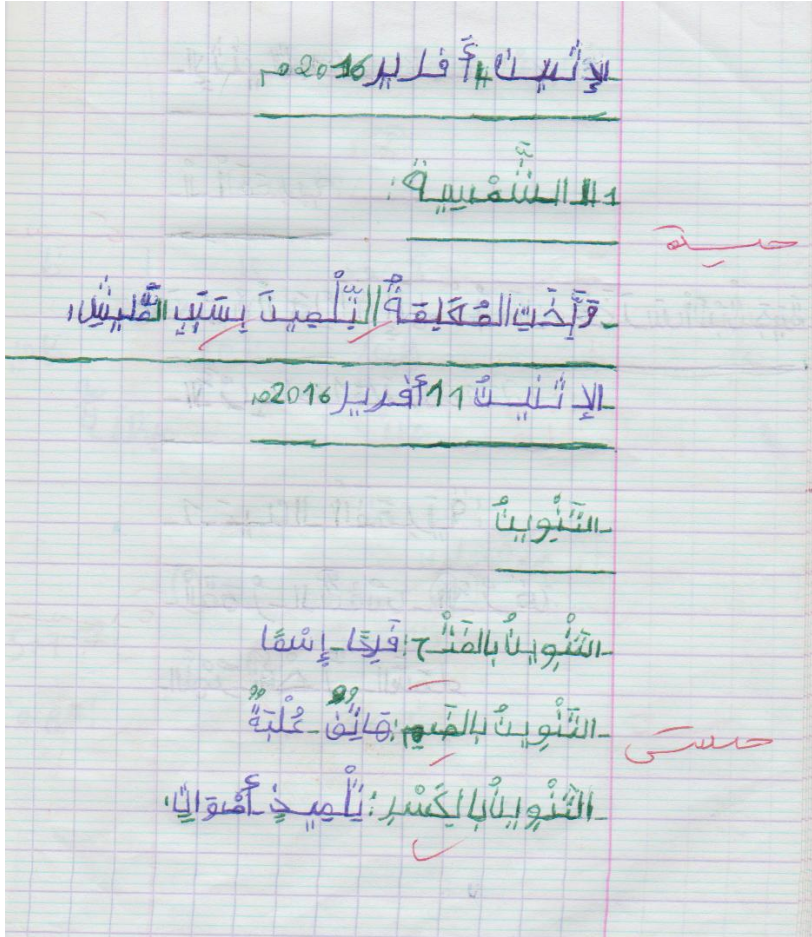 الإِثنين 4 أَفريل 2016م
الـ الشَّمْسِية:
حسنة
وَبَّخَتِ المُعَلِمَةُ التِّلْمِيذَ بِسَبَبِ
الإثنينُ 11 أَفريل 2016م
التَنْوِينُ
التَنْوِينُ بالفَتْح: فَرِحًا - إِسْمًا
التَنْوِينُ بالضَم: هَاتِفٌ - عُلْبَةٌ
حسن
التَنْوِينُ بِالكَسْرِ: تِلْمِيذٍ - أَصْوَاتٍ.